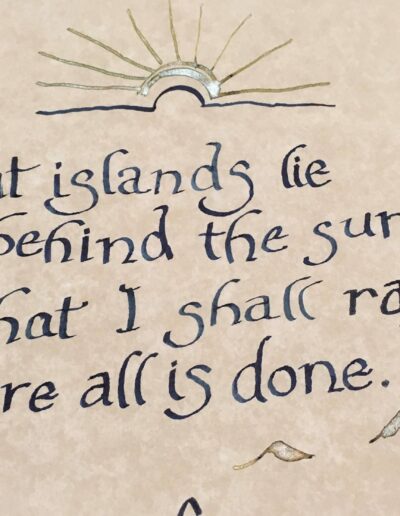 ut islands lie
behind the sun
hat I shall ra
re all is done.